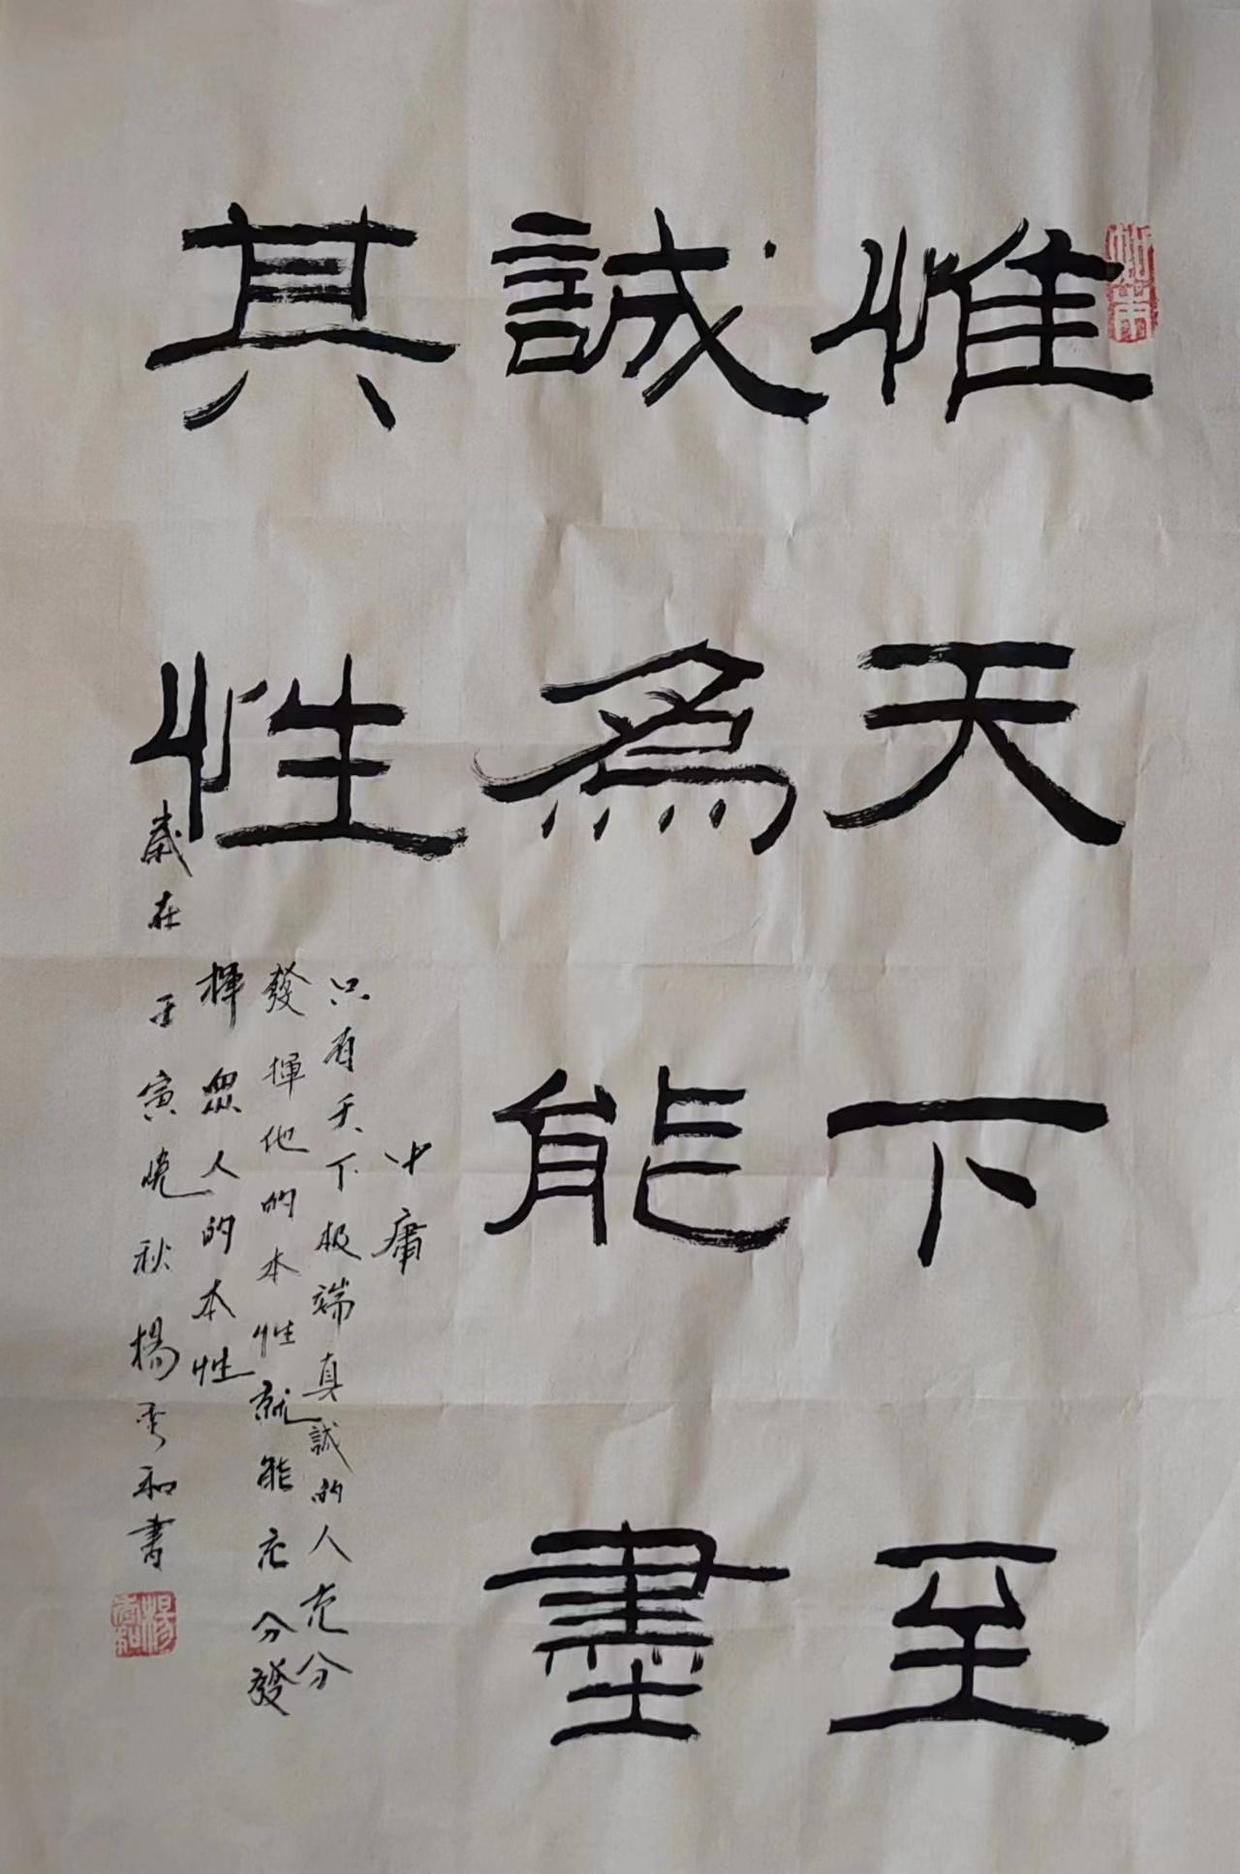 惟天下至
誠為能盡
其性
中庸
只有天下极端真誠的人充分
發揮他的本性就能充分發
揮眾人的本性
歲在壬寅晚秋楊秀和書